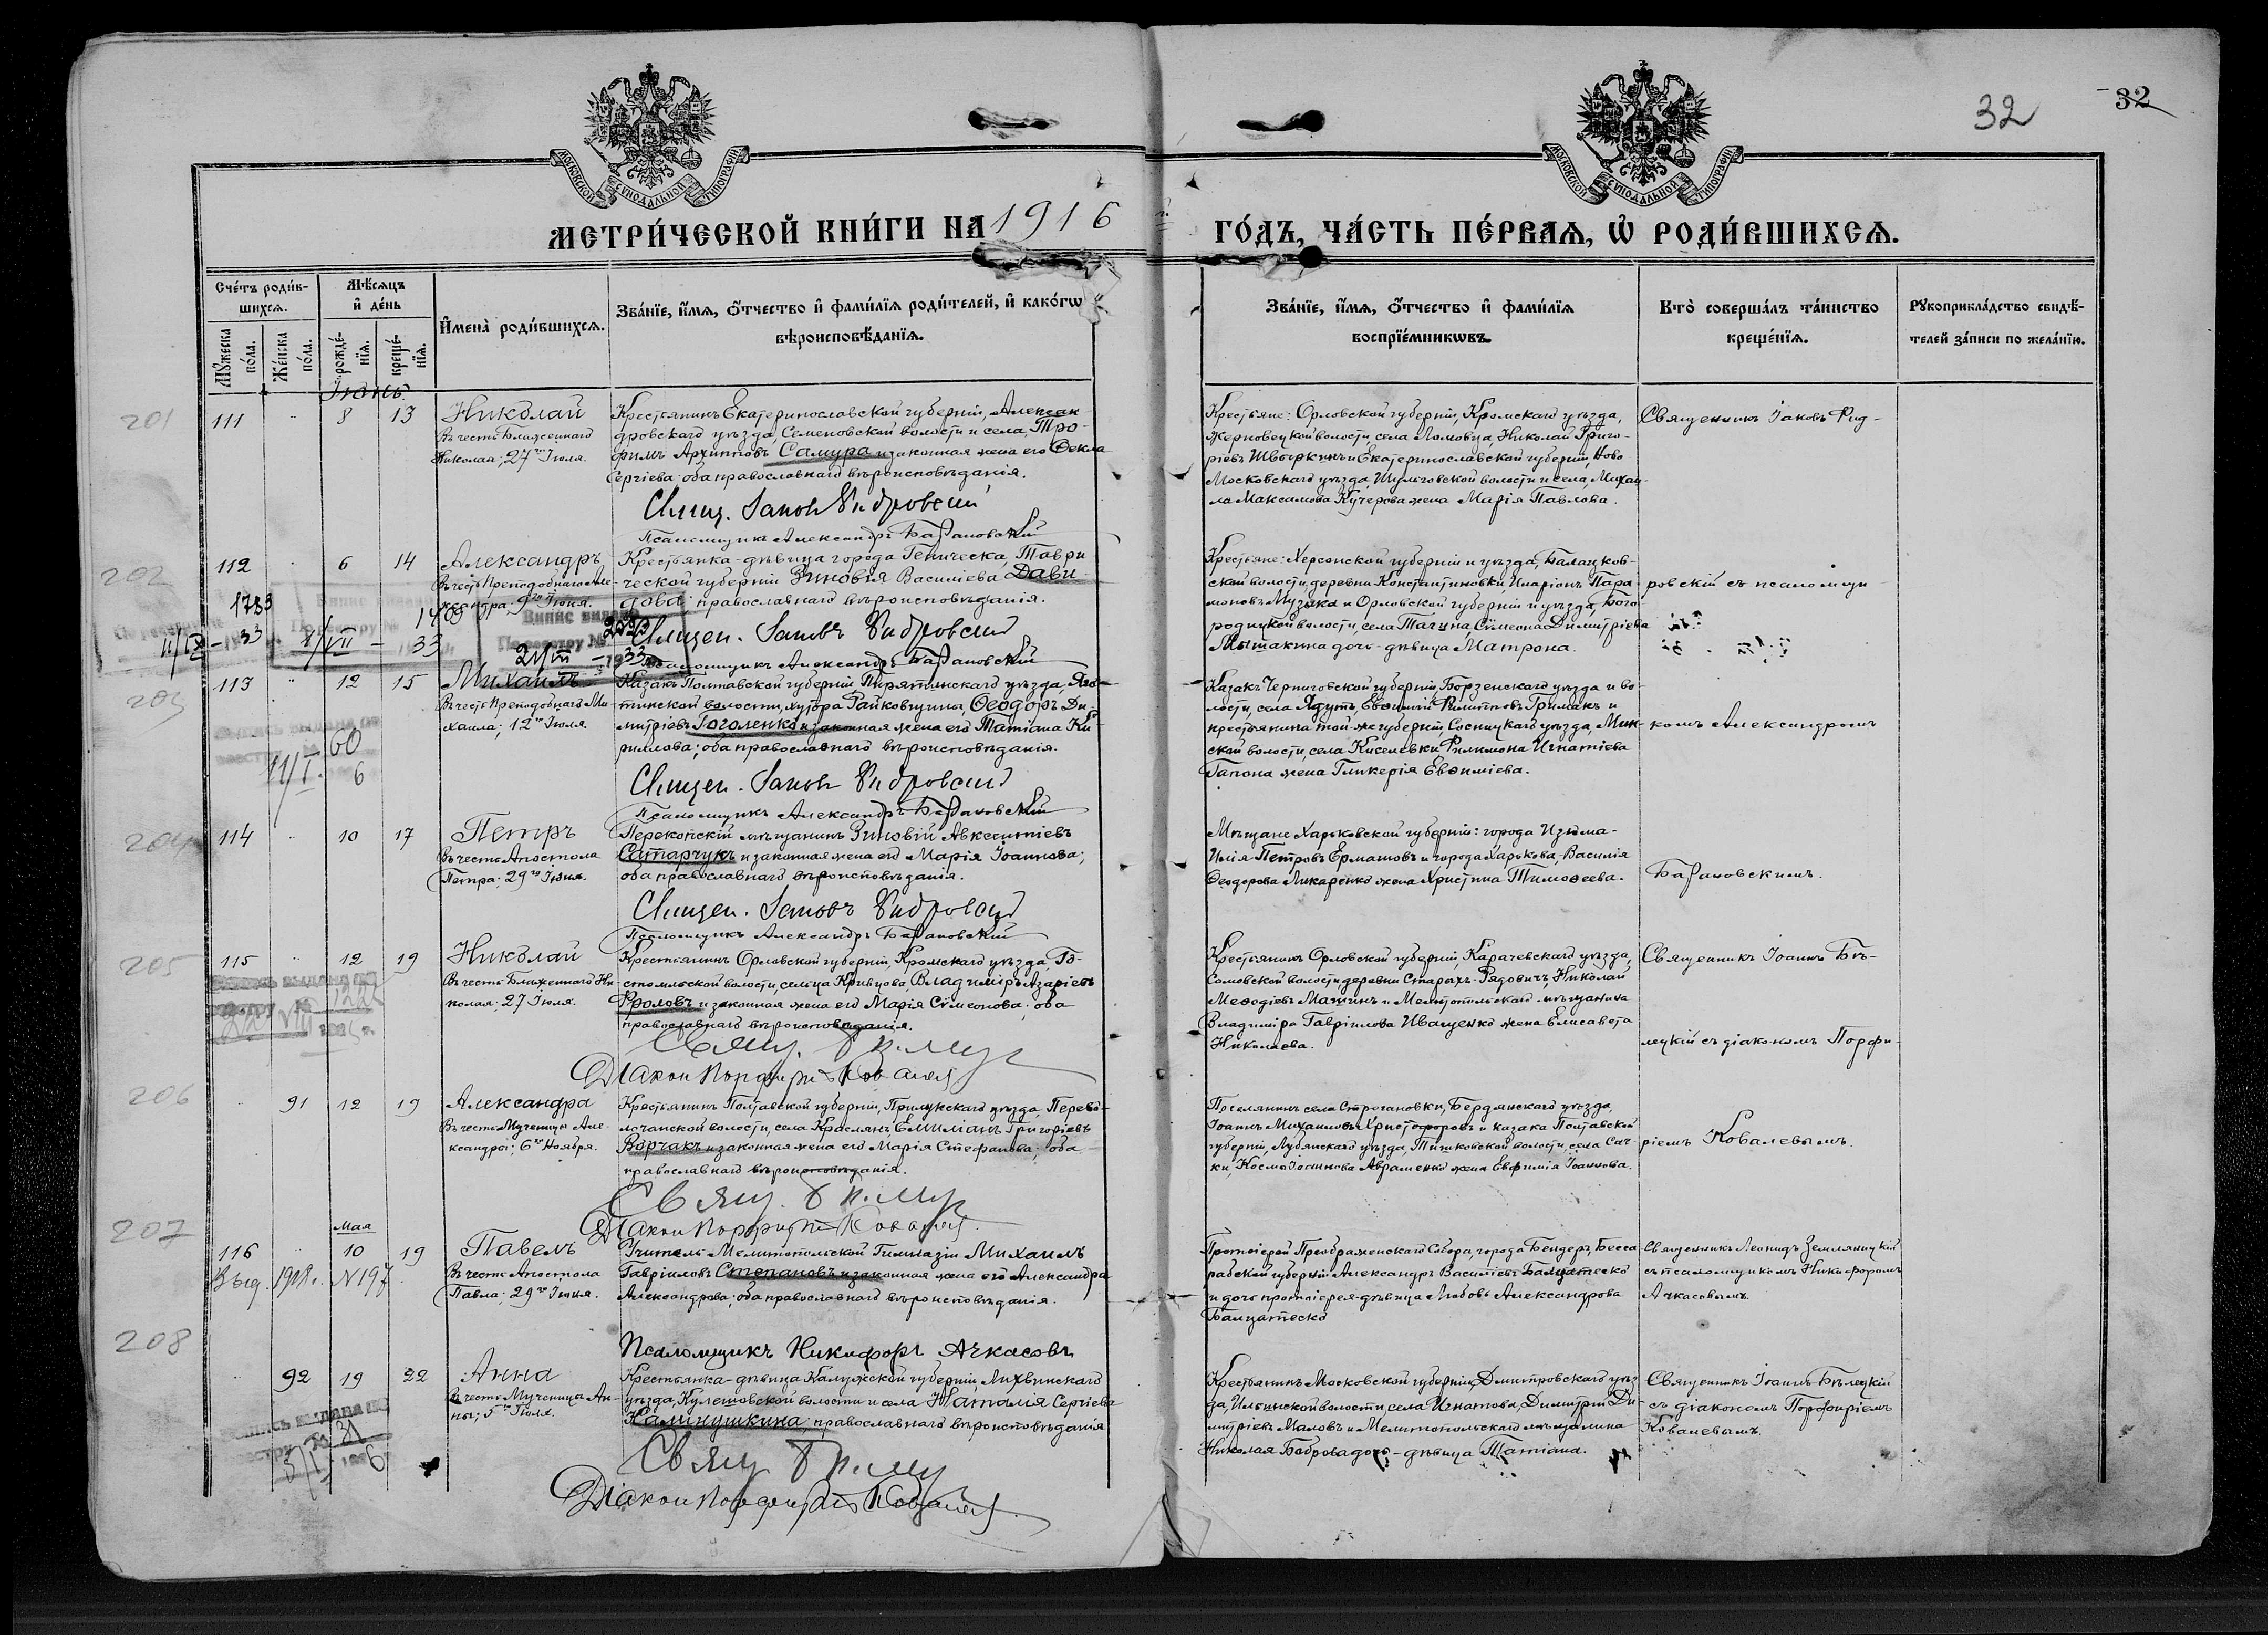 МОСКОВСКОЙ СѴНОДАЛЬНОЙ ТИПОГРАФІИ
МОСКОВСКОЙ СѴНОДАЛЬНОЙ ТИПОГРАФІИ
32
32
МЕТРИ́ЧЕСКОЙ КНИ́ГИ НА 1916
ГО́ДЪ, ЧА́СТЬ ПЕ́РВАѦ, Ѡ РОДИ́ВШИХСѦ.
Сче́тъ роди́в-
шихсѧ.
Мꙋжеска по́ла.
Же́нска по́ла.
Мѣ́сѧцъ
и҆ де́нь
рожде́-
нїѧ.
креще́-
нїѧ.
И҆мена̀ роди́вшихсѧ.
Зва́нїе, и҆́мѧ, ѻ҆́тчество и҆ фами́лїѧ роди́телей, и҆ како́гѡ
вѣроисповѣ́данїѧ.
Зва́нїе, и҆́мѧ, ѻ҆́тчество и҆ фами́лїѧ
воспрїе́мникѡвъ.
Кто̀ соверша́лъ та́инство
креще́нїѧ.
Рꙋкоприкла́дство свидѣ́-
телей за́писи по жела́нїю.
Іюнь.
201
111 " 8 13
Николай
Въ честь Блаженнаго
Николая; 27го Іюля.
Крестьянинъ Екатеринославской губерніи, Алексан
дровскаго уѣзда, Семеновской волости и села, Тро-
фимъ Архиповъ Самура и законная жена его Ѳекла
Сергіева; оба православнаго вѣроисповѣданія.
Свящ. Іаковъ Ридровскій
Псаломщикъ Александръ Барановскій
Крестьяне: Орловской губерніи, Кромскаго уѣзда,
Жерновецкой волости, села Ломовца, Николай Григо-
ріевъ Швыркинъ и Екатеринославской губерніи, Ново
Московскаго уѣзда, Шульговской волости и села, Михаи-
ла Максимова Кучерова жена Марія Павлова.
Священникъ Іаковъ Рид-
202
112 " 6 14
Александръ
Въ честь Преподобнаго Але-
ксандра; 9го Іюня.
Крестьянка-дѣвица города Геническа, Таври
ческой губерніи Зиновія Василіева Дави-
дова; православнаго вѣроисповѣданія.
Священ. Іаковъ Ридровскій
Псаломщикъ Александръ Барановскій
Крестьяне: Херсонской губерніи и уѣзда, Балацков-
ской волости, деревни Константиновки, Иларіонъ Пара
моновъ Музыка и Орловской губерніи и уѣзда, Бого-
родицкой волости, села Тагина, Сѵмеона Димитріева
Мытакина дочь-дѣвица Матрона.
ровскій съ псаломщи-
1783
11/IX - 33
8/VII - 33
1409
Випис видано
По реєстру №
21/VII - 1933
203
113 " 12 15
Михаилъ
Въ честь Преподобнаго Ми-
хаила; 12го Іюля.
Казакъ Полтавской губерніи Пирятинскаго уѣзда, Яго-
тинской волости, хутора Райковщина, Ѳеодоръ Ди-
митріевъ Гоголенко и законная жена его Татіана Ки-
риллова; оба православнаго вѣроисповѣданія.
Священ. Іаковъ Ридровскій
Псаломщикъ Александръ Барановскій
Казакъ Черниговской губерніи, Борзенскаго уѣзда и во-
лости, села Ядутъ, Евѳимій Филипповъ Гримакъ и
крестьянина той-же губерніи, Сосницкаго уѣзда, Мин-
ской волости, села Киселевки, Филимона Игнатіева
Гапона жена Гликерія Евѳиміева.
комъ Александромъ
60
11/I. 6
204
114 " 10 17
Петръ
Въ честь Апостола
Петра; 29го Іюня.
Перекопскій мѣщанинъ Зиновій Авксентіевъ
Сатарчукъ и законная жена его Марія Іоаннова;
оба православнаго вѣроисповѣданія.
Священ. Іаковъ Ридровскій
Псаломщикъ Александръ Барановскій
Мѣщане Харьковской губерніи: города Изюма-
Илія Петровъ Ермаковъ и города Харькова, Василія
Ѳеодорова Ликаренко жена Христина Тимоѳеева.
Барановскимъ.
205
115 " 12 19
Николай
Въ честь Блаженнаго Ни-
колая; 27 Іюля.
Крестьянинъ Орловской губерніи, Кромскаго уѣзда, Го-
стомльской волости, сельца Кривцова, Владиміръ Азаріевъ
Фроловъ и законная жена его Марія Сѵмеонова; оба
православнаго вѣроисповѣданія.
Діакон Порфирій Ковалев
Крестьянинъ Орловской губерніи, Карачевскаго уѣзда,
Соловской волости, деревни Старыхъ-Рядовичъ, Николай
Меѳодіевъ Матинъ и Мелитопольскаго мѣщанина
Владиміра Гавріилова Иващенко жена Елисавета
Николаева.
Священникъ Іоаннъ Бѣ-
лецкій съ діакономъ Порфи-
206
" 91 12 19
Александра
Въ честь Мученицы Але-
ксандры; 6го Ноября.
Крестьянинъ Полтавской губерніи, Прилукскаго уѣзда, Перево-
лочанской волости, села Краслянъ, Емиліанъ Григоріевъ
Ворчакъ и законная жена его Марія Стефанова; оба
православнаго вѣроисповѣданія.
Діакон Порфирій Ковалев
Поселянинъ села Строгановки, Бердянскаго уѣзда,
Іоаннъ Михаиловъ Христофоровъ и казака Полтавской
губерніи, Лубянскаго уѣзда, Тишковской волости, села Сач-
ки, Космы Іоаннова Авраменко жена Евфимія Іоаннова.
ріемъ Ковалевымъ.
207
Мая
116 " 10 19
Выд. 1918 г. N 197.
Павелъ
Въ честь Апостола
Павла; 29го Іюня.
Учитель Мелитопольской Гимназіи Михаилъ
Гавріиловъ Степановъ и законная жена его Александра
Александрова; оба православнаго вѣроисповѣданія.
Псаломщикъ Никифоръ Ачкасовъ
Протоіерей Преображенскаго Собора, города Бендеръ, Бесса
рабской губерніи Александръ Василіевъ Балцатеско
и дочь протоіерея-дѣвица Любовь Александрова
Балцатеско
Священникъ Леонидъ Земляницкій
съ псаломщикомъ Никифоромъ
Ачкасовымъ.
208
" 92 19 22
Анна
Въ честь Мученицы Ан-
ны; 5го Іюля.
Крестьянка-дѣвица Калужской губерніи, Лихвинскаго
уѣзда, Кулешовской волости и села Наталія Сергіева
Калинушкина; православнаго вѣроисповѣданія
Діакон Порфирій Ковалев
Крестьянинъ Московской губерніи, Дмитровскаго уѣз-
да, Ильинской волости, села Игнатова, Димитрій Ди-
митріевъ Маловъ и Мелитопольскаго мѣщанина
Николая Боброва дочь-дѣвица Татіана.
Священникъ Іоаннъ Бѣлецкій
съ діакономъ Порфиріемъ
Ковалевымъ.